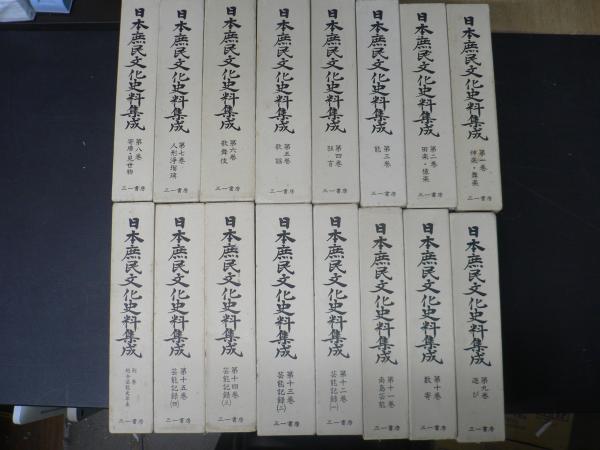 日本庶民文化史料集成
第一巻
神楽・舞楽
三一書房
日本庶民文化史料集成
第二巻
田楽・猿楽
三一書房
日本庶民文化史料集成
第三巻
能
三一書房
日本庶民文化史料集成
第四巻
狂言
三一書房
日本庶民文化史料集成
第五巻
歌謡
三一書房
日本庶民文化史料集成
第六巻
歌舞伎
三一書房
日本庶民文化史料集成
第七巻
人形浄瑠璃
三一書房
日本庶民文化史料集成
第八巻
寄席・見世物
三一書房
日本庶民文化史料集成
第九巻
遊び
三一書房
日本庶民文化史料集成
第十巻
数寄
三一書房
日本庶民文化史料集成
第十一巻
南島芸能
三一書房
日本庶民文化史料集成
第十二巻
芸能記録(一)
三一書房
日本庶民文化史料集成
第十三巻
芸能記録(二)
三一書房
日本庶民文化史料集成
第十四巻
芸能記録(三)
三一書房
日本庶民文化史料集成
第十五巻
芸能記録(四)
三一書房
日本庶民文化史料集成
別巻
三一書房